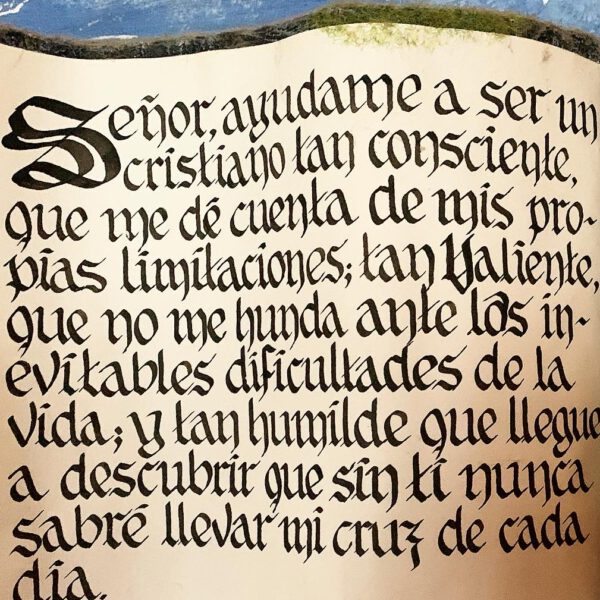 Señor, ayudame a ser un
cristiano tan consciente,
que me dé cuenta de mis pro-
pias limitaciones; tan Valiente,
que no me hunda ante las in-
evitables dificultades de la
vida; y tan humilde que llegue
a descubrir que sin ti nunca
sabré llevar mi cruz de cada
día.